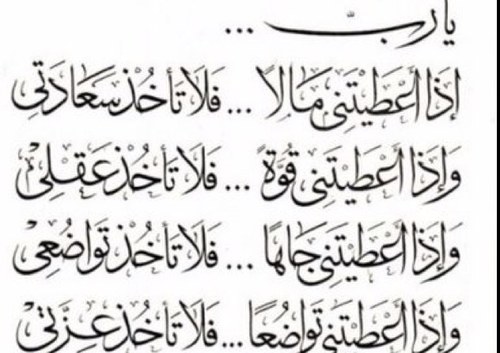 يا ربّ ...
إِذَا أَعْطَيْتَنِي مَالًا ... فَلَا تَأْخُذْ سَعَادَتِي
وَإِذَا أَعْطَيْتَنِي قُوَّةً ... فَلَا تَأْخُذْ عَقْلِيْ
وَإِذَا أَعْطَيْتَنِي جَاهًا ... فَلَا تَأْخُذْ تَوَاضُعِيْ
وَإِذَا أَعْطَيْتَنِي تَوَاضُعًا ... فَلَا تَأْخُذْ عِزَّتِيْ